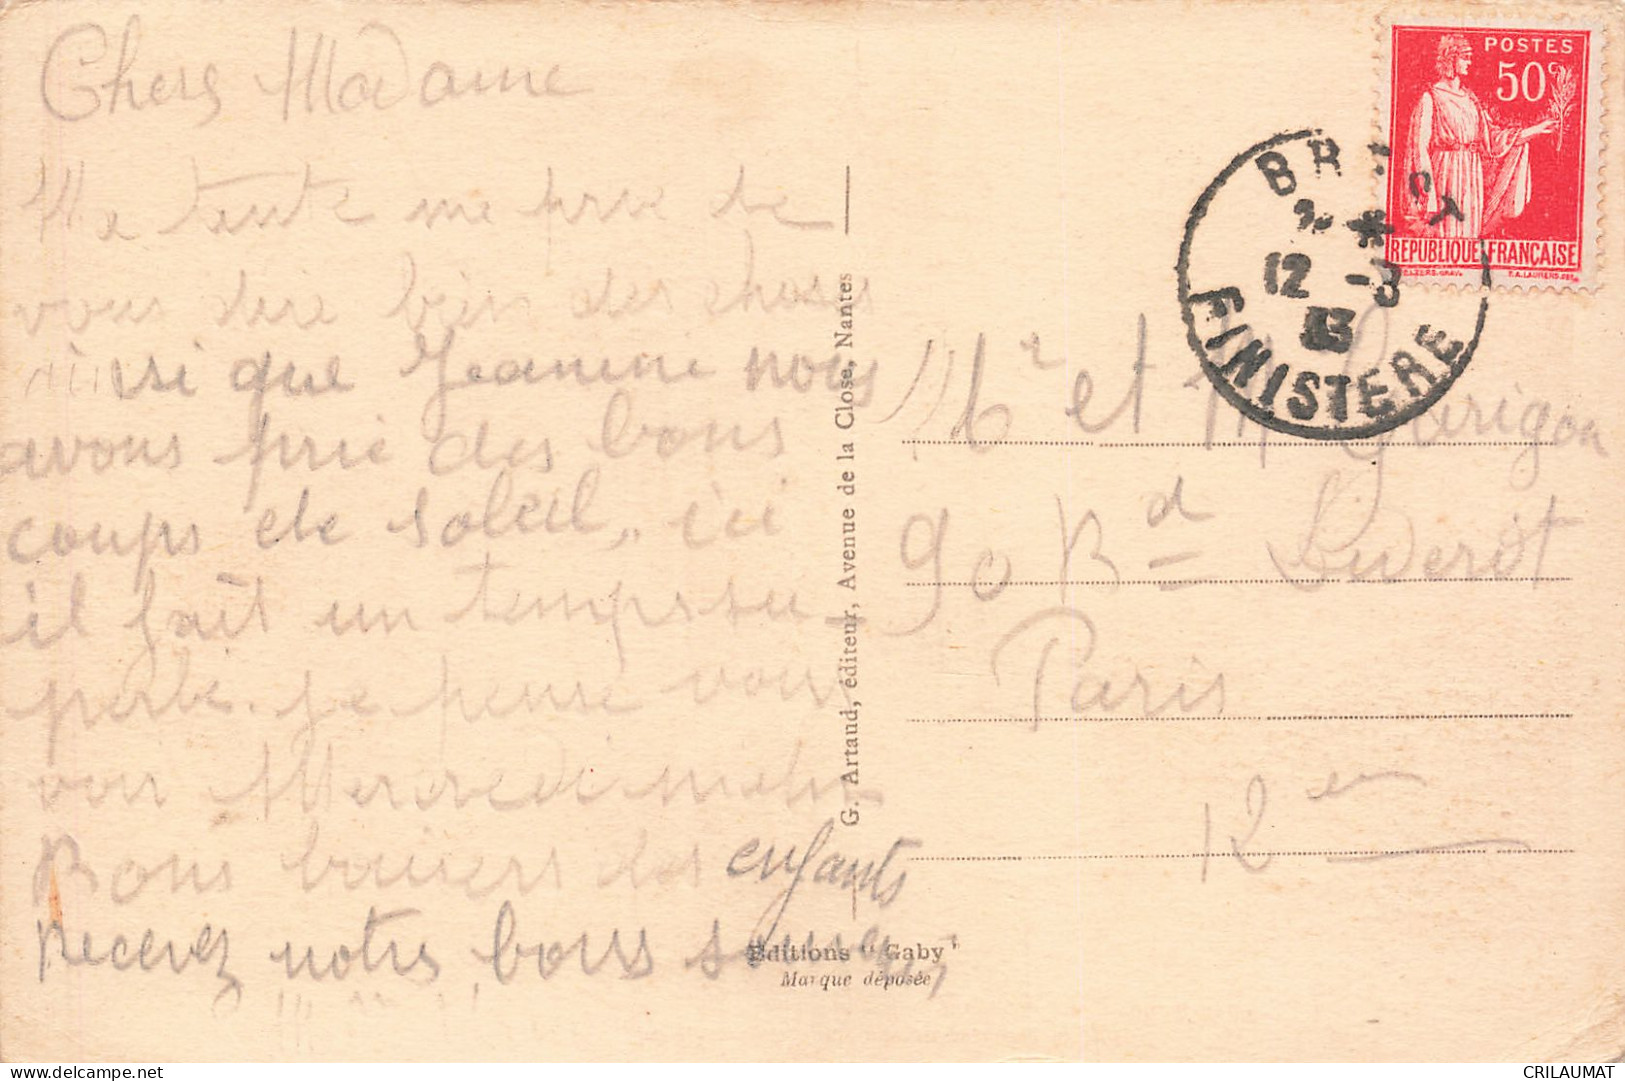 Chers Madame
Ma tante me prie de
vous dire bien des choses
ainsi que Jeanine nous
avons prie des bons
coups de soleil, ici
il fait un temps su-
perbe. je pense vous
voir Mercredi matin
Bons baisers des enfants
Recevez notre bons
G. Artaud, éditeur, Avenue de la Close, Nantes
Editions "Gaby"
Marque déposée
POSTES
50c
REPUBLIQUE FRANÇAISE
BREST
12 -8
33
FINISTERE
Mr et M
90 Bd Diderot
Paris
12 en
www.delcampe.net
CRILAUMAT